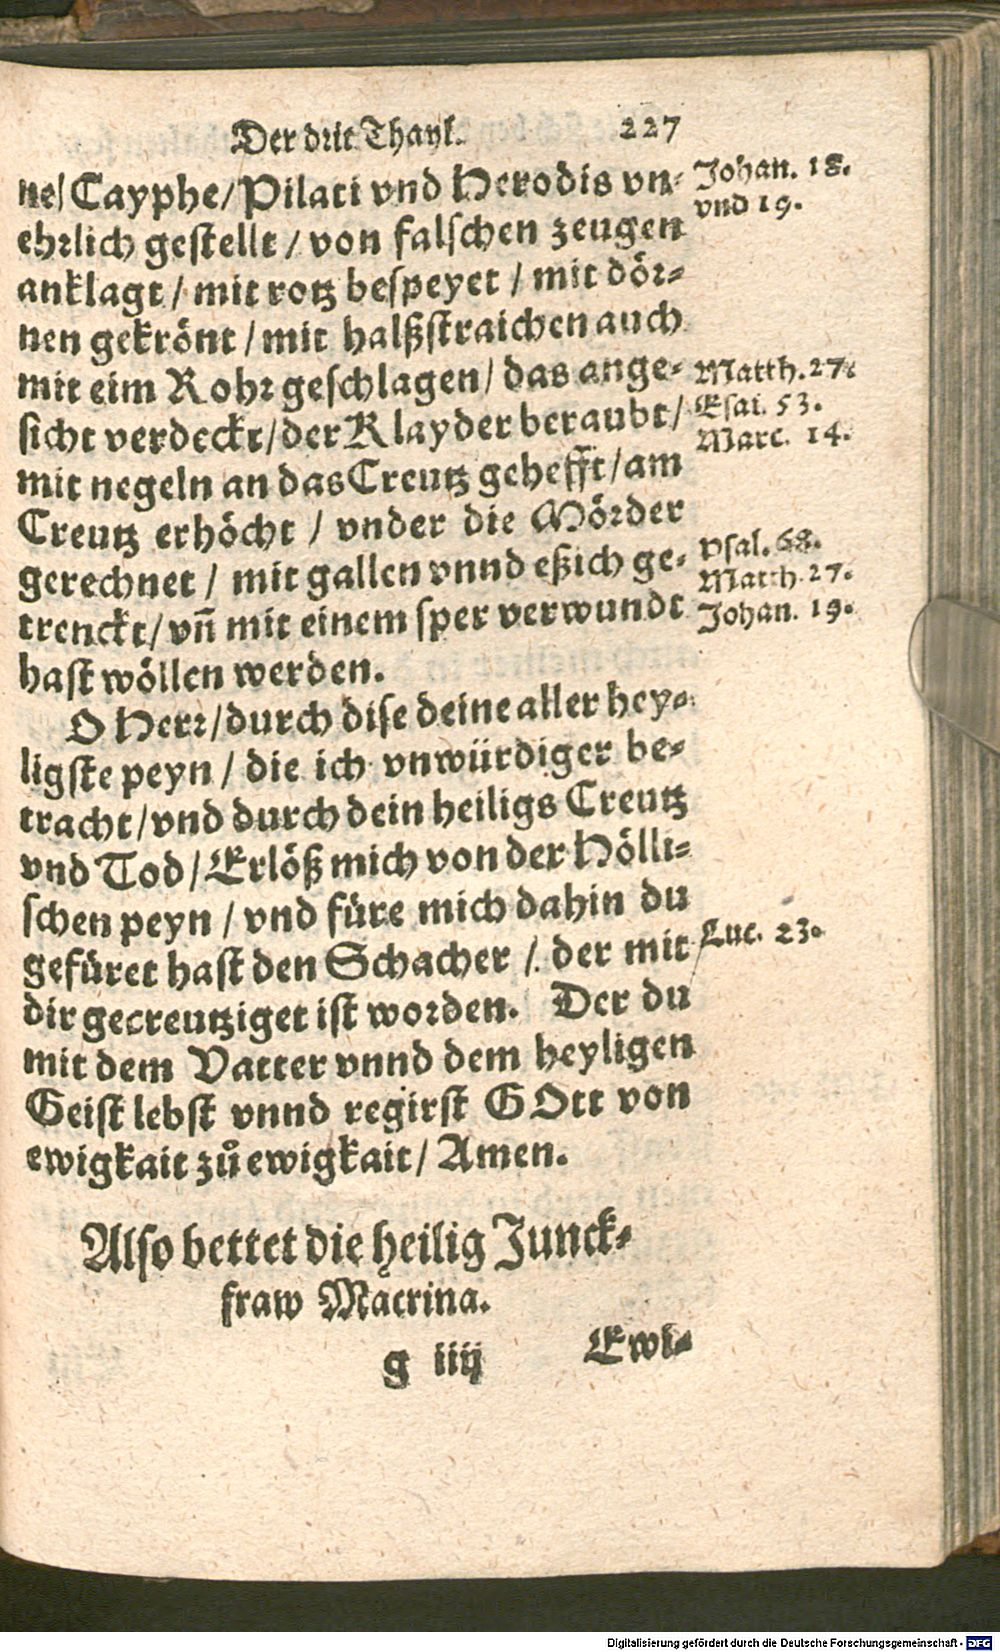 Der drit Thayl. 227
ne/ Cayphe/ Pilati vnd Herodis vn- Johan. 18.
ehrlich gestellt / von falschen zeugen vnd 19.
anklagt / mit rotz bespeyet / mit dör-
nen gekrönt / mit halßstraichen auch
mit eim Rohr geschlagen/ das ange- Matth. 27.
sicht verdeckt/ der Klayder beraubt/ Esai. 53.
mit negeln an das Creutz gehefft/ am Marc. 14.
Creutz erhöcht / vnder die Mörder
gerechnet / mit gallen vnnd eßich ge- Psal. 68.
trenckt/ vn̄ mit einem sper verwundt Matth. 27.
hast wöllen werden. Johan. 19.
O Herr/ durch dise deine aller hey-
ligste peyn / die ich vnwürdiger be-
tracht/ vnd durch dein heiligs Creutz
vnd Tod/ Erlöß mich von der Hölli-
schen peyn / vnd füre mich dahin du
gefüret hast den Schacher / der mit Luc. 23.
dir gecreutziget ist worden. Der du
mit dem Vatter vnnd dem heyligen
Geist lebst vnnd regirst GOtt von
ewigkait zuͦ ewigkait/ Amen.
Also bettet die heilig Junck-
fraw Macrina.
g iiij Ewi-
Digitalisierung gefördert durch die Deutsche Forschungsgemeinschaft - DFG